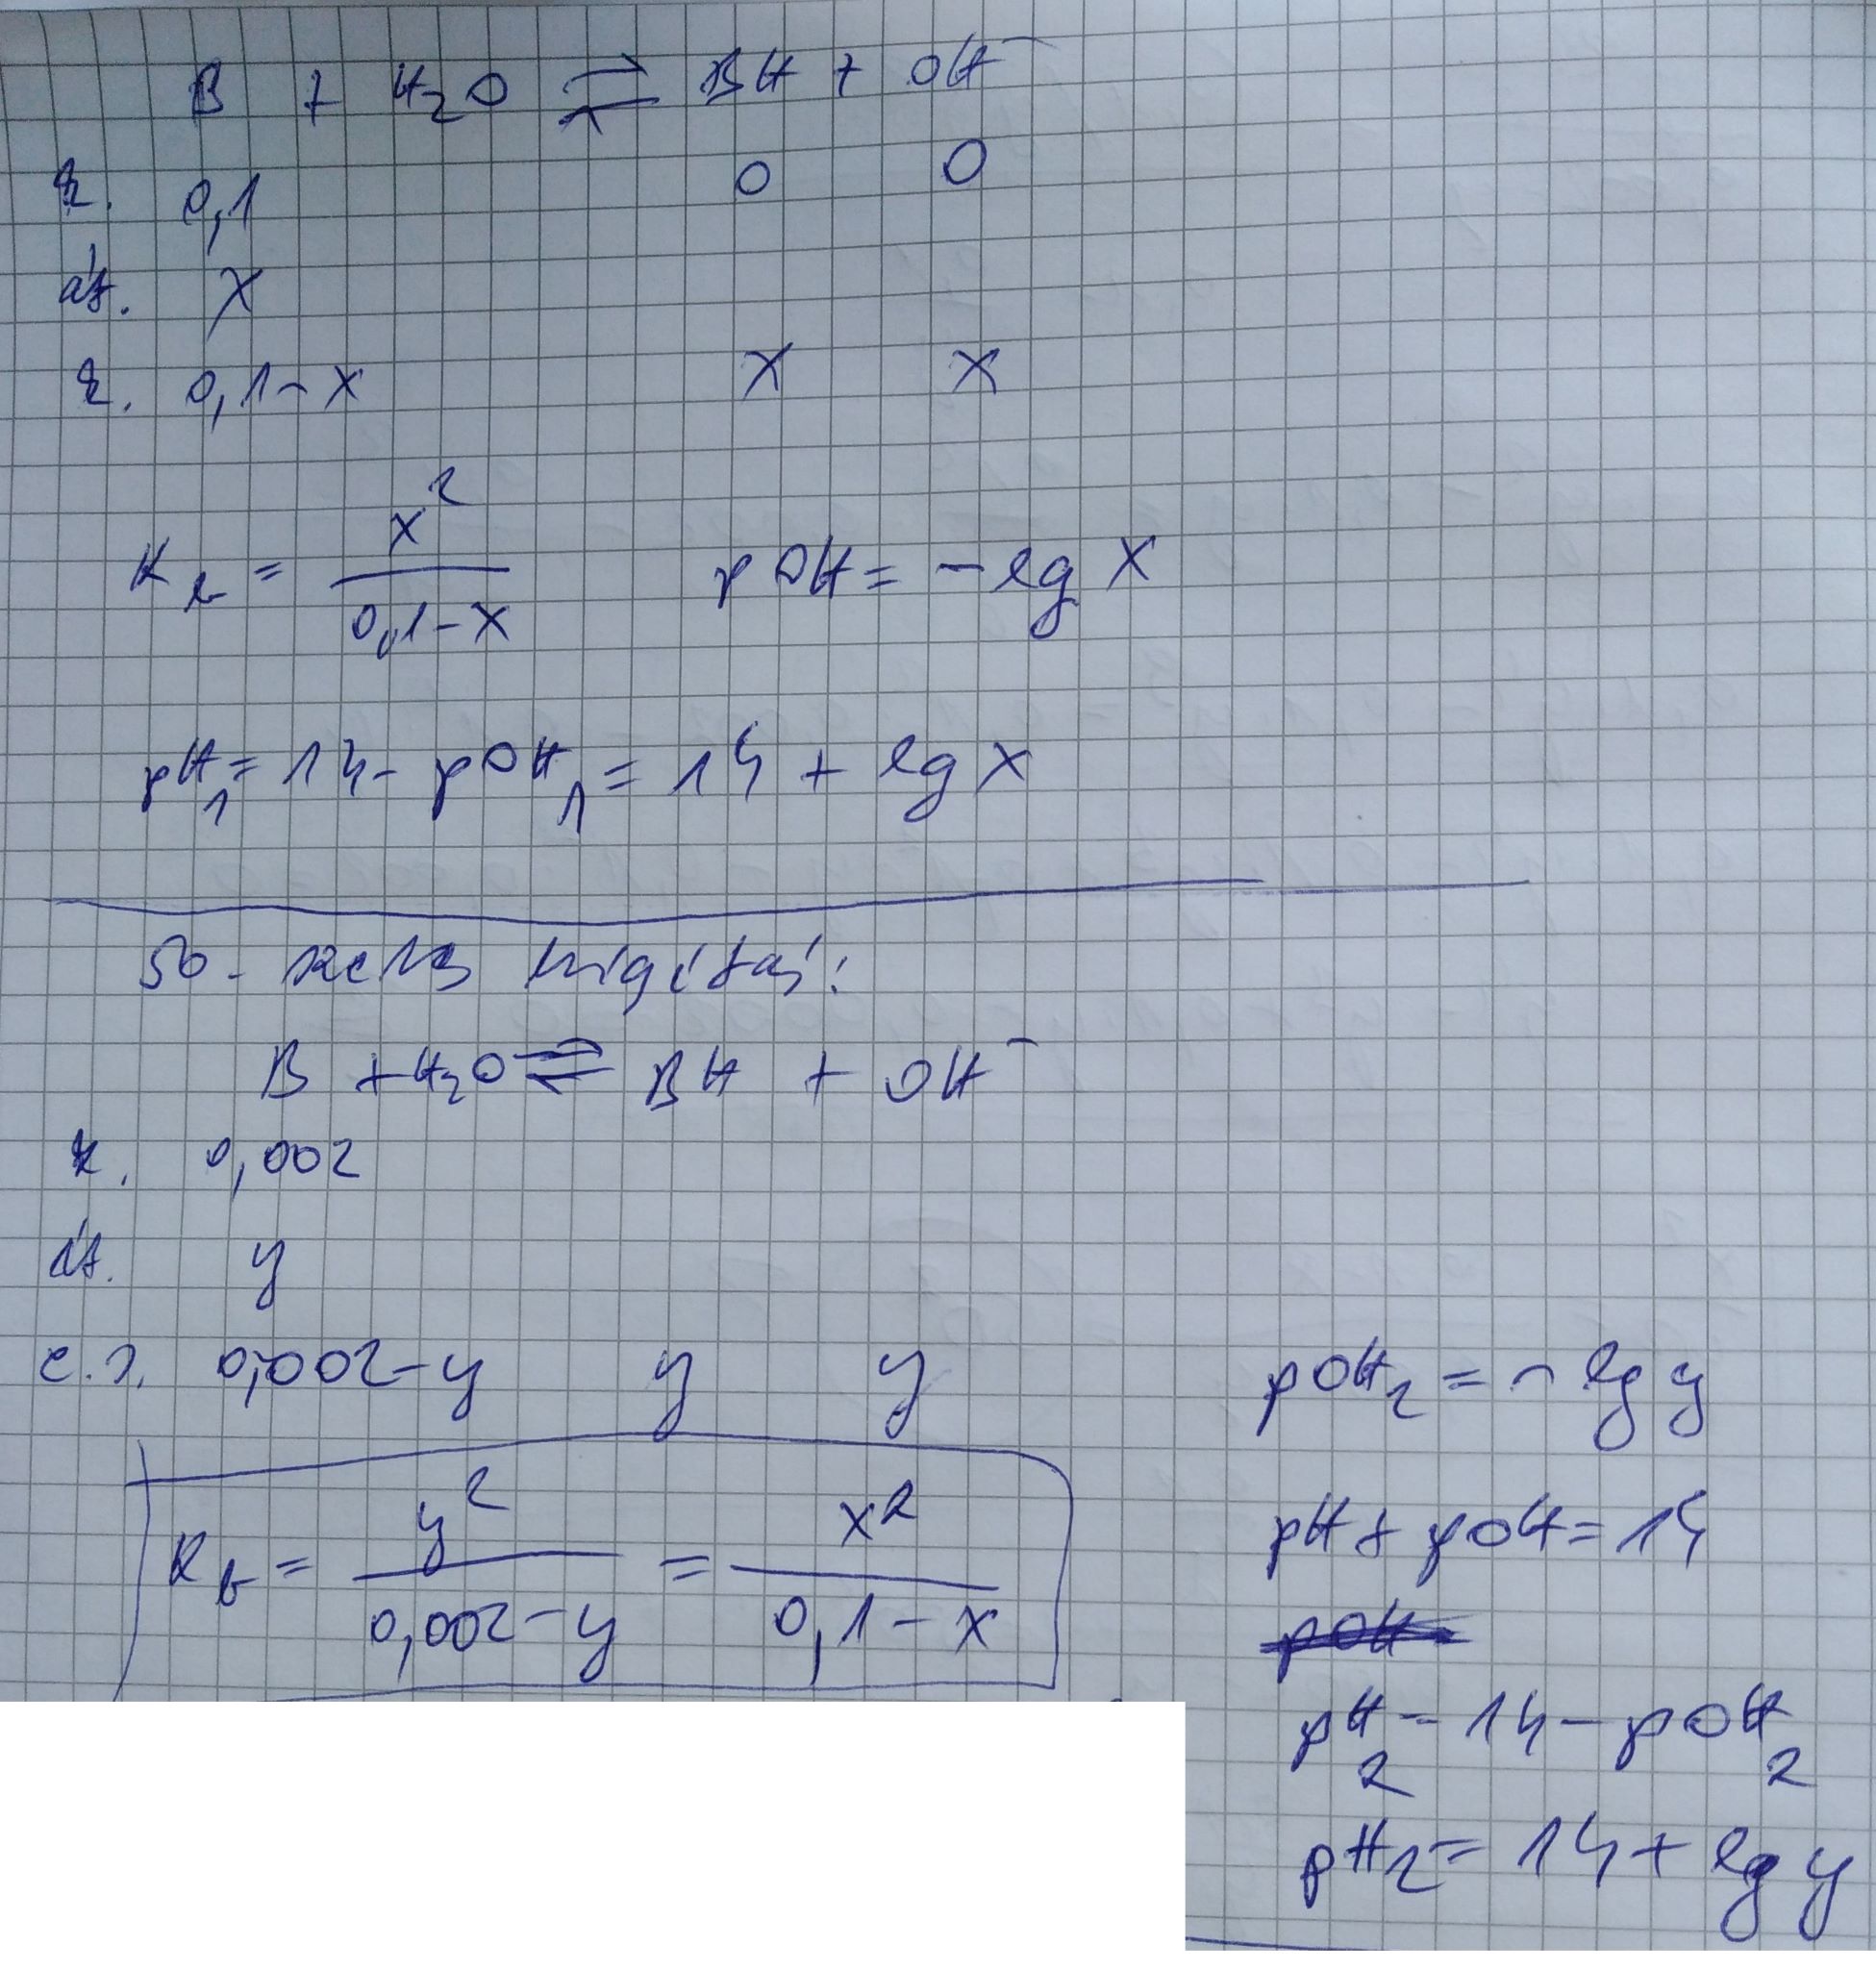 B + H₂O ⇌ BH + OH⁻
k. 0,1 0 0
át. x
e. 0,1-x x x
K_b = x² / (0,1-x) pOH = -lg x
pH₁ = 14 - pOH₁ = 14 + lg x
50-szeres hígítás:
B + H₂O ⇌ BH + OH⁻
k. 0,002
át. y
e.s. 0,002-y y y
K_b = y² / (0,002-y) = x² / (0,1-x)
pOH₂ = - lg y
pH + pOH = 14
pOH
pH₂ = 14 - pOH₂
pH₂ = 14 + lg y